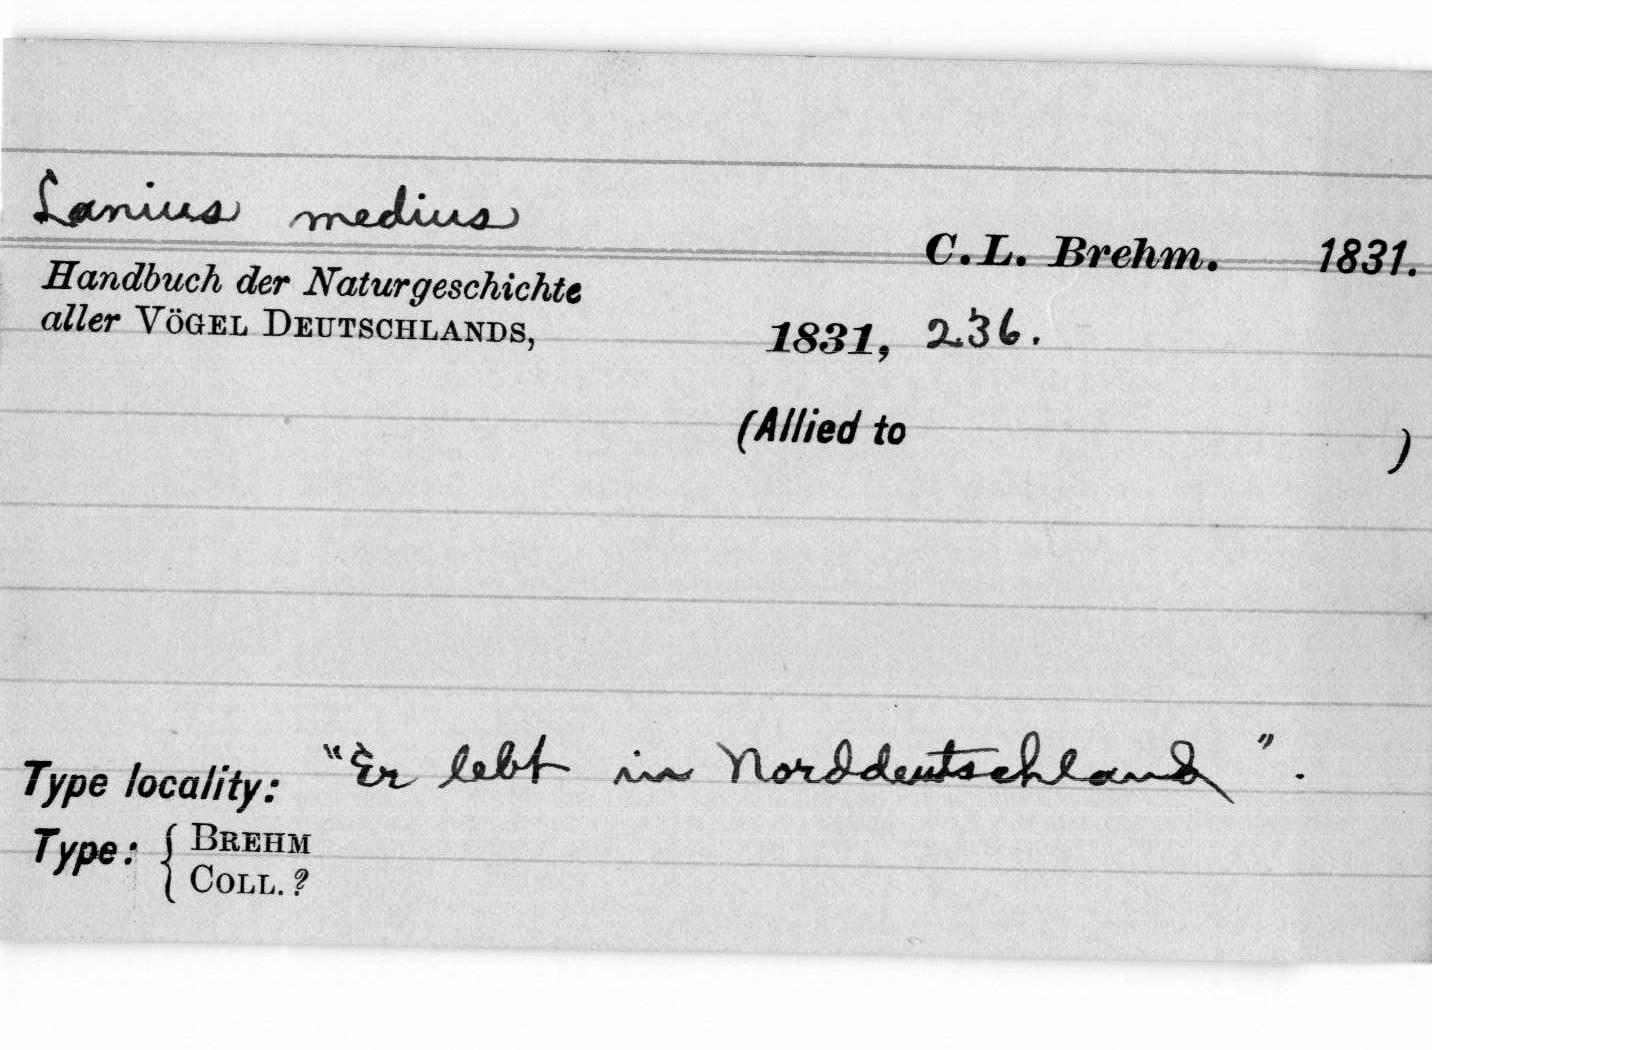 Lanius medius
C.L. Brehm. 1831.
Handbuch der Naturgeschichte
aller VÖGEL DEUTSCHLANDS,
1831, 236.
(Allied to )
Type locality: "Er lebt in Norddeutschland".
Type: { BREHM
COLL. ?